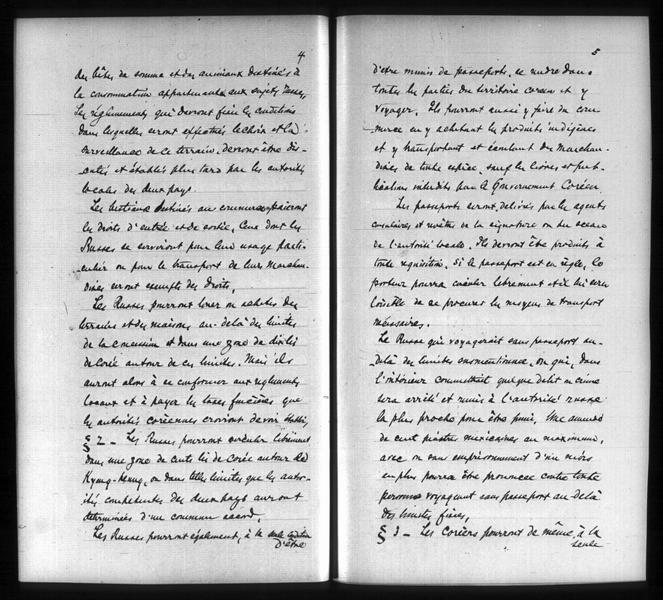 4
des bêtes de somme et des animaux destinés à
la consommation appartenant aux sujets russes.
Les règlements qui devront fixer les conditions
dans lesquelles seront effectués le choix et la
surveillance de ce terrain, devront être dis-
cutés et établis plus tard par les autorités
locales des deux pays.
Les bestiaux destinés au commerce paieront
les droits d'entrée et de sortie. Ceux dont les
Russes se serviront pour leur usage parti-
culier ou pour le transport de leurs marchan-
dises seront exempts de droits.
Les Russes pourront louer ou acheter des
terrains et des maisons au-delà des limites
de la concession et dans une zone de dix lis
de Corée autour de ces limites. Mais ils
auront alors à se conformer aux règlements
locaux et à payer les taxes foncières que
les autorités coréennes croiront devoir établir.
§ 2 - Les Russes pourront circuler librement
dans une zone de cent lis de Corée autour de
Kyeng-heung, ou dans telles limites que les auto-
rités compétentes des deux pays auront
déterminées d'un commun accord.
Les Russes pourront également, à la seule condition
d'être
5
d'être munis de passeports, se rendre dans
toutes les parties du territoire coréen et y
voyager. Ils pourront aussi y faire du com-
merce en y achetant les produits indigènes
et y transportant et écoulant des marchan-
dises de toute espèce, sauf les livres et pu-
blications interdits par le Gouvernement Coréen.
Les passeports seront délivrés par les agents
consulaires et revêtus de la signature ou du sceau
de l'autorité locale. Ils devront être produits à
toute réquisition. Si le passeport est en règle, le
porteur pourra circuler librement et il lui sera
loisible de se procurer les moyens de transport
nécessaires.
Le Russe qui voyagerait sans passeport au-
delà des limites susmentionnées, ou qui, dans
l'intérieur commettrait quelque délit ou crime
sera arrêté et remis à l'autorité russe
la plus proche pour être puni. Une amende
de cent piastres mexicaines au maximum,
avec ou sans emprisonnement d'un mois
en plus pourra être prononcée contre toute
personne voyageant sans passeport au delà
des limites fixées.
§ 3 - Les Coréens pourront de même, à la
seule